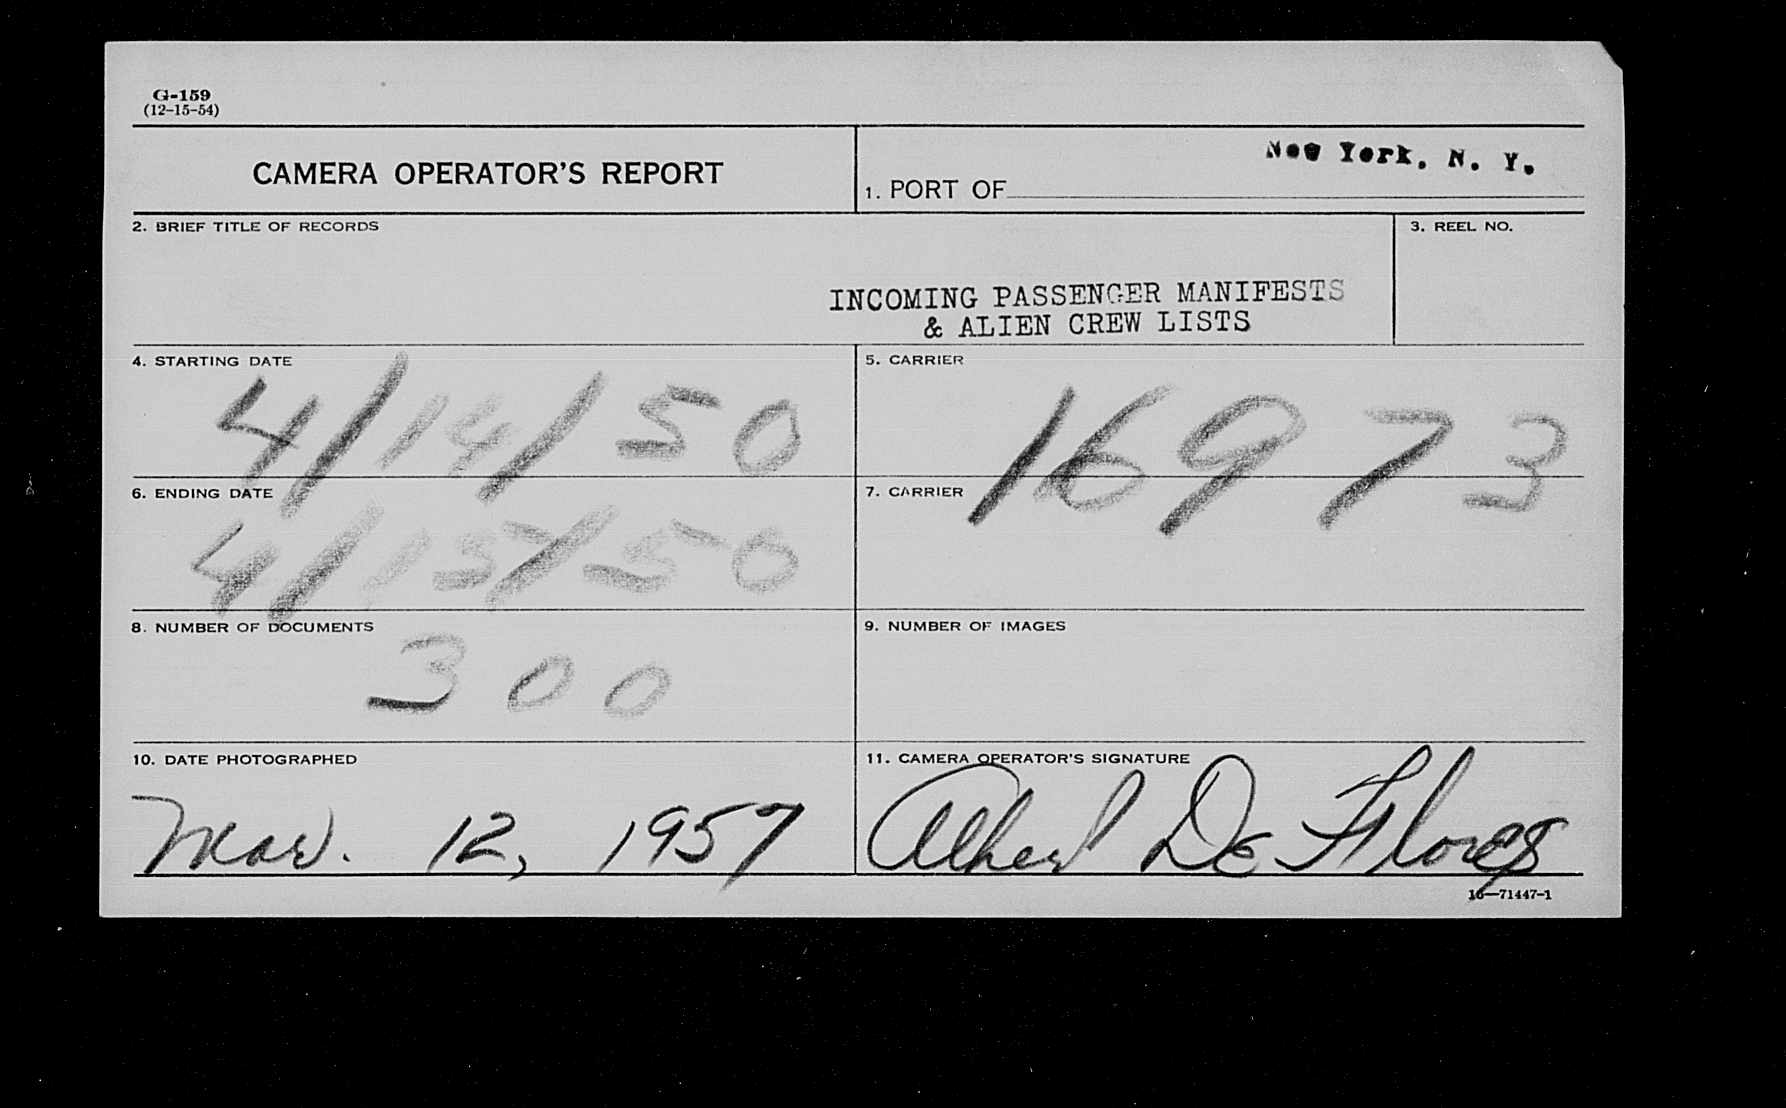 G-159
(12-15-54)
CAMERA OPERATOR'S REPORT
1. PORT OF New York, N. Y.
2. BRIEF TITLE OF RECORDS
3. REEL NO.
INCOMING PASSENGER MANIFESTS
& ALIEN CREW LISTS
4. STARTING DATE
4/14/50
5. CARRIER
16973
6. ENDING DATE
4/15/50
7. CARRIER
8. NUMBER OF DOCUMENTS
300
9. NUMBER OF IMAGES
10. DATE PHOTOGRAPHED
Mar. 12, 1957
11. CAMERA OPERATOR'S SIGNATURE
Albert De Flores
16—71447-1